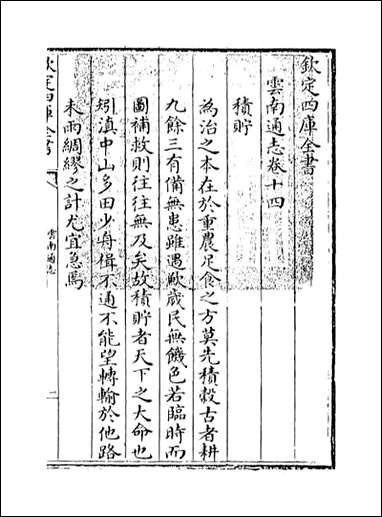 欽定四庫全書
雲南通志卷十四
積貯
為治之本在於重農足食之方莫先積穀古者耕
九餘三有備無患雖遇歉歲民無饑色若臨時而
圖補救則往往無及矣故積貯者天下之大命也
矧滇中山多田少舟楫不通不能望轉輸於他路
未雨綢繆之計尤宜急焉
欽定四庫全書
雲南通志
一